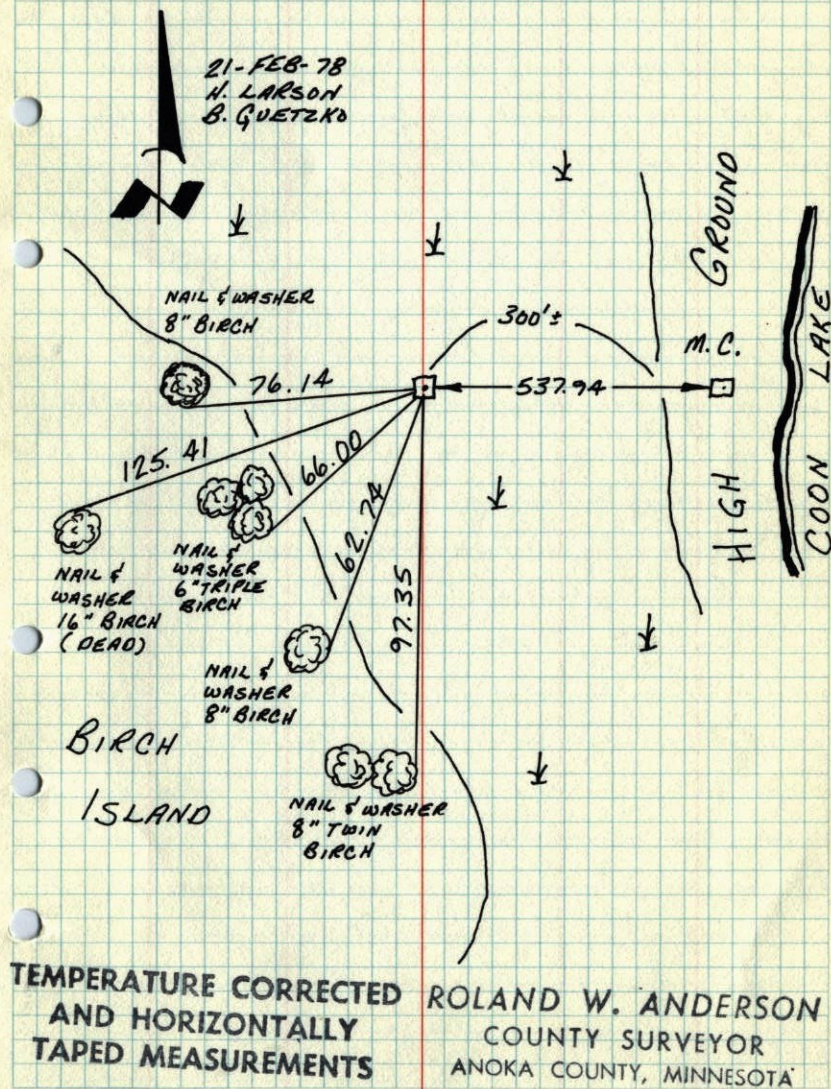 21-FEB-78
H. LARSON
B. GUETZKO
N
GROUND
NAIL & WASHER
8" BIRCH
300'±
M.C.
COON LAKE
76.14
537.94
125.41
66.00
62.74
97.35
HIGH
NAIL &
WASHER
6" TRIPLE
BIRCH
NAIL &
WASHER
16" BIRCH
(DEAD)
NAIL &
WASHER
8" BIRCH
BIRCH
ISLAND
NAIL & WASHER
8" TWIN
BIRCH
TEMPERATURE CORRECTED
AND HORIZONTALLY
TAPED MEASUREMENTS
ROLAND W. ANDERSON
COUNTY SURVEYOR
ANOKA COUNTY, MINNESOTA